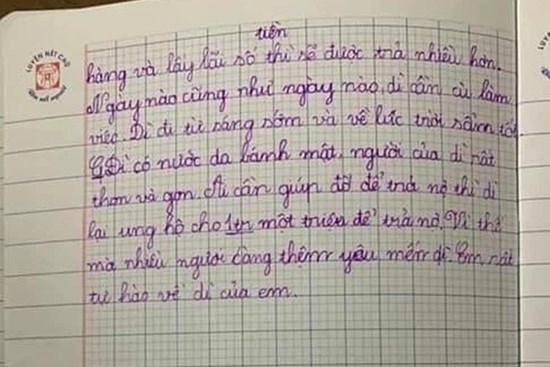 LUYỆN NÉT CHỮ
RÈN NẾT NGƯỜI
tiền
hàng và lấy lãi số thì sẽ được trả nhiều hơn.
Ngày nào cũng như ngày nào, dì cần cù làm
việc. Dì đi từ sáng sớm và về lúc trời sầm tối.
Dì có nước da bánh mật, người của dì rất
thon và gọn. Ai cần giúp đỡ để trả nợ thì dì
lại ung hộ cho 1tr một triệu để trả nợ. Vì thế
mà nhiều người càng thêm yêu mến dì. Em rất
tự hào về dì của em.